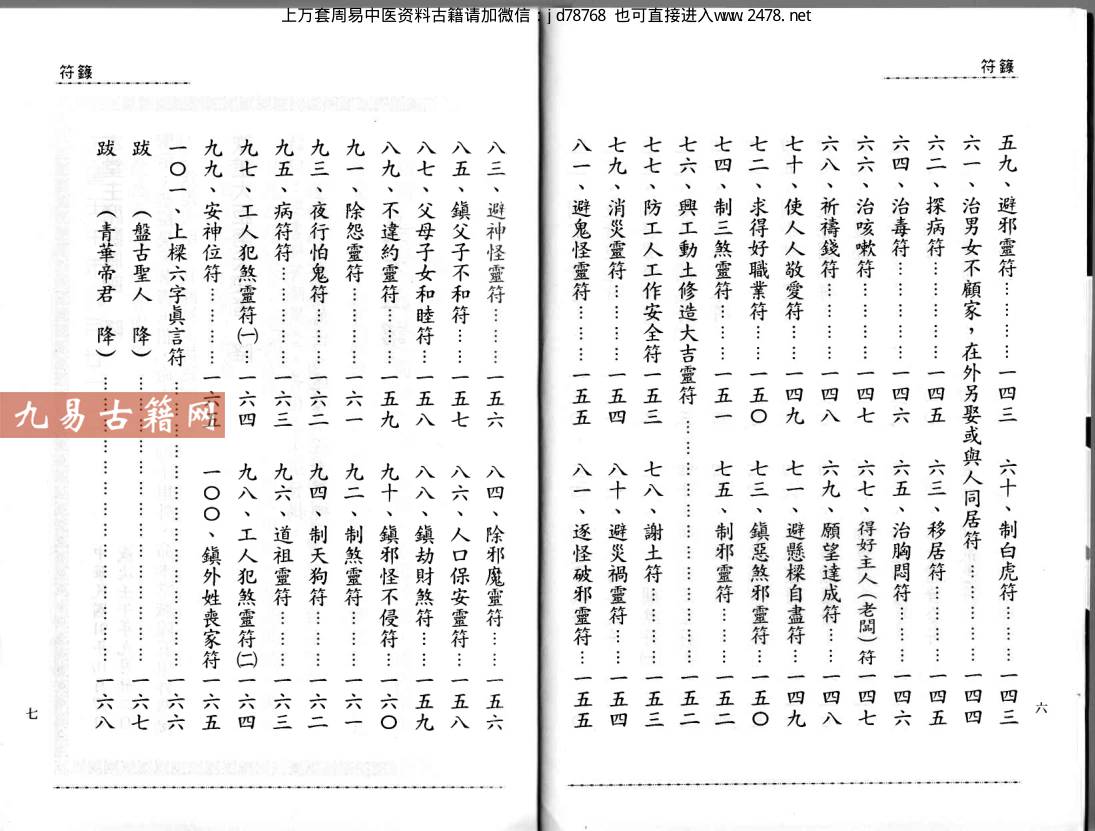 上万套周易中医资料古籍请加微信：jd78768 也可直接进入www.2478.net
符籙
五九、避邪靈符…………一四三 六十、制白虎符………一四三
六一、治男女不顧家，在外另娶或與人同居符……………一四四
六二、探病符……………一四五 六三、移居符…………一四五
六四、治毒符……………一四六 六五、治胸悶符………一四六
六六、治咳嗽符…………一四七 六七、得好主人（老闆）符一四七
六八、祈禱錢符…………一四八 六九、願望達成符……一四八
七十、使人人敬愛符……一四九 七一、避懸樑自盡符…一四九
七二、求得好職業符……一五〇 七三、鎮惡煞邪靈符…一五〇
七四、制三煞靈符………一五一 七五、制邪靈符………一五二
七六、興工動土修造大吉靈符……………………………一五二
七七、防工人工作安全符一五三 七八、謝土符…………一五三
七九、消災靈符…………一五四 八十、避災禍靈符……一五四
八一、避鬼怪靈符………一五五 八一、逐怪破邪靈符…一五五
六
符籙
八三、避神怪靈符………一五六 八四、除邪魔靈符……一五六
八五、鎮父子不和符……一五七 八六、人口保安靈符…一五八
八七、父母子女和睦符…一五八 八八、鎮劫財煞符……一五九
八九、不違約靈符………一五九 九十、鎮邪怪不侵符…一六〇
九一、除怨靈符…………一六一 九二、制煞靈符………一六一
九三、夜行怕鬼符………一六二 九四、制天狗符………一六二
九五、病符符……………一六三 九六、道祖靈符………一六三
九七、工人犯煞靈符㈠…一六四 九八、工人犯煞靈符㈡一六四
九九、安神位符…………一六五 一〇〇、鎮外姓喪家符一六五
一〇一、上樑六字眞言符…………………………………一六六
跋　（盤古聖人　降）……………………………………一六七
跋　（青華帝君　降）……………………………………一六八
七
九易古籍网